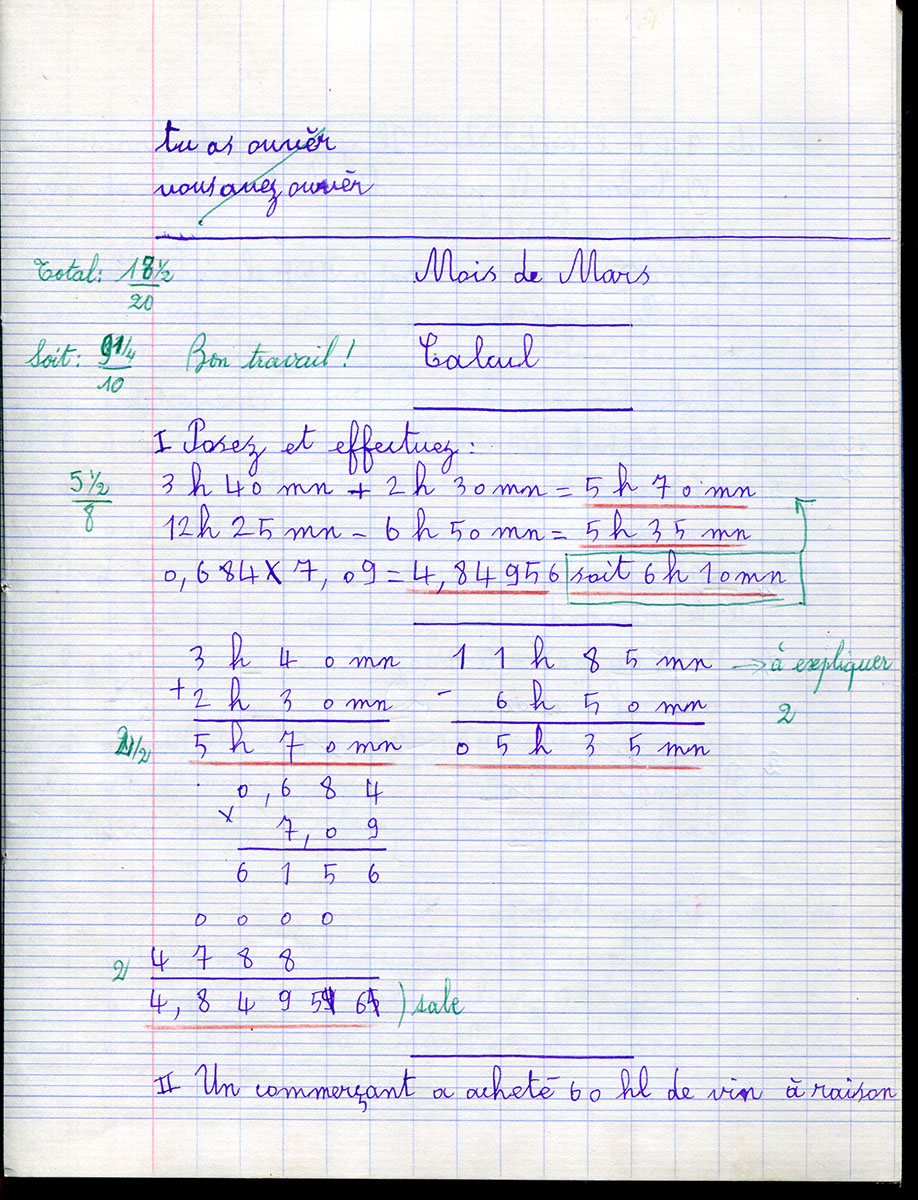 tu as ouvrir
vous avez ouvrir
Total: 18 1/2 / 20
Mois de Mars
Soit: 9 1/4 / 10 Bon travail ! Calcul
I Posez et effectuez :
5 1/2 / 8
3 h 40 mn + 2 h 30 mn = 5 h 70 mn
12 h 25 mn - 6 h 50 mn = 5 h 35 mn
0,684 x 7,09 = 4,84956 soit 6 h 10 mn
3 h 40 mn 11 h 85 mn → à expliquer
+ 2 h 30 mn - 6 h 50 mn 2
1/2 5 h 70 mn 05 h 35 mn
0,684
x 7,09
6156
0000
2 4788
4,84956 ) sale
II Un commerçant a acheté 60 hl de vin à raison